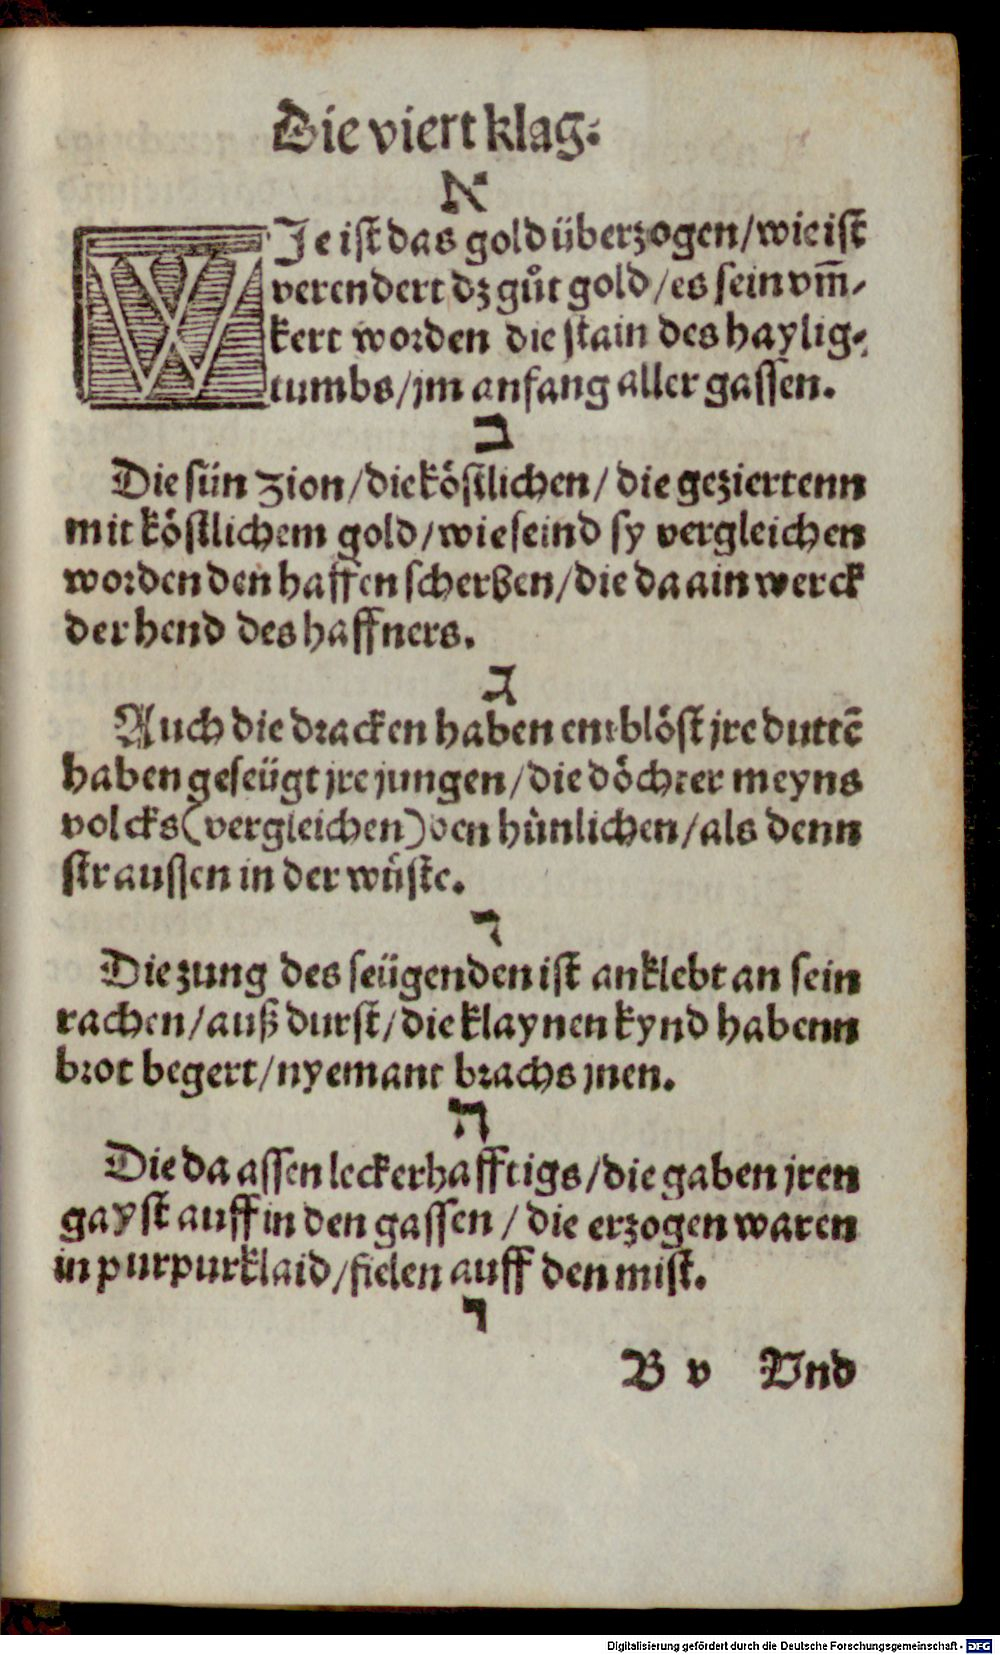 Die viert klag.
א
WJe ist das gold überzogen/wie ist
verendert dz gůt gold/es sein vm̄-
kert worden die stain des haylig-
tumbs/jm anfang aller gassen.
ב
Die sün Zion/die köstlichen/die geziertenn
mit köstlichem gold/wie seind sy vergleichen
worden den haffen scherben/die da ain werck
der hend des haffners.
ג
Auch die dracken haben entblöst jre duttē
haben geseügt jre jungen/die döchter meyns
volcks(vergleichen)den hünlichen/als denn
straussen in der wüste.
ד
Die zung des seügenden ist anklebt an sein
rachen/auß durst/die klaynen kynd habenn
brot begert/nyemant brachs jnen.
ה
Die da assen leckerhafftigs/die gaben jren
gayst auff in den gassen/die erzogen waren
in purpurklaid/fielen auff den mist.
ו
B v Vnd
Digitalisierung gefördert durch die Deutsche Forschungsgemeinschaft - DFG